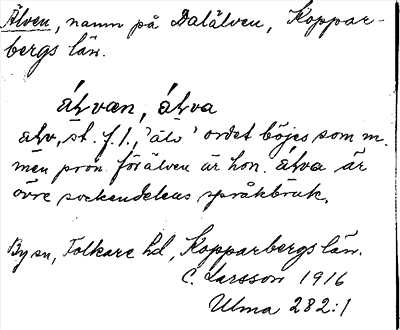 Älven, namn på Dalälven, Koppar-
bergs län.
álvæn, álva
ælv, st. f. 1, 'älv' ordet böjes som m.
men pron. för älven är hon. álva är
övre sockendelens språkbruk.
By sn, Folkare hd, Kopparbergs län.
C. Larsson 1916
Ulma 282:1